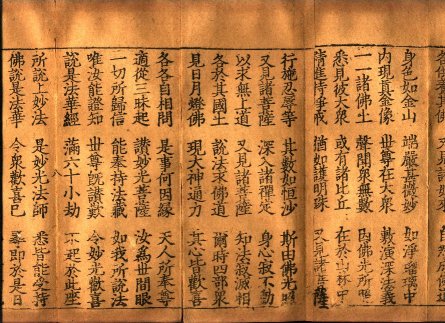 身色如金山　端嚴甚微妙　如淨瑠璃中
內現真金像　世尊在大衆　敷演深法義
一一諸佛土　聲聞衆無數　因佛光所照
悉見彼大衆　或有諸比丘　在於山林中
精進持淨戒　猶如護明珠　又見諸菩薩
行施忍辱等　其數如恒沙　斯由佛光照
又見諸菩薩　深入諸禪定　身心寂不動
以求無上道　又見諸菩薩　知法寂滅相
各於其國土　說法求佛道　爾時四部衆
見日月燈佛　現大神通力　其心皆歡喜
各各自相問　是事何因緣　天人所奉尊
適從三昧起　讚妙光菩薩　汝為世間眼
一切所歸信　能奉持法藏　如我所說法
唯汝能證知　世尊既讚歎　令妙光歡喜
說是法華經　滿六十小劫　不起於此座
所說上妙法　是妙光法師　悉皆能受持
佛說是法華　令衆歡喜已　尋即於是日
八